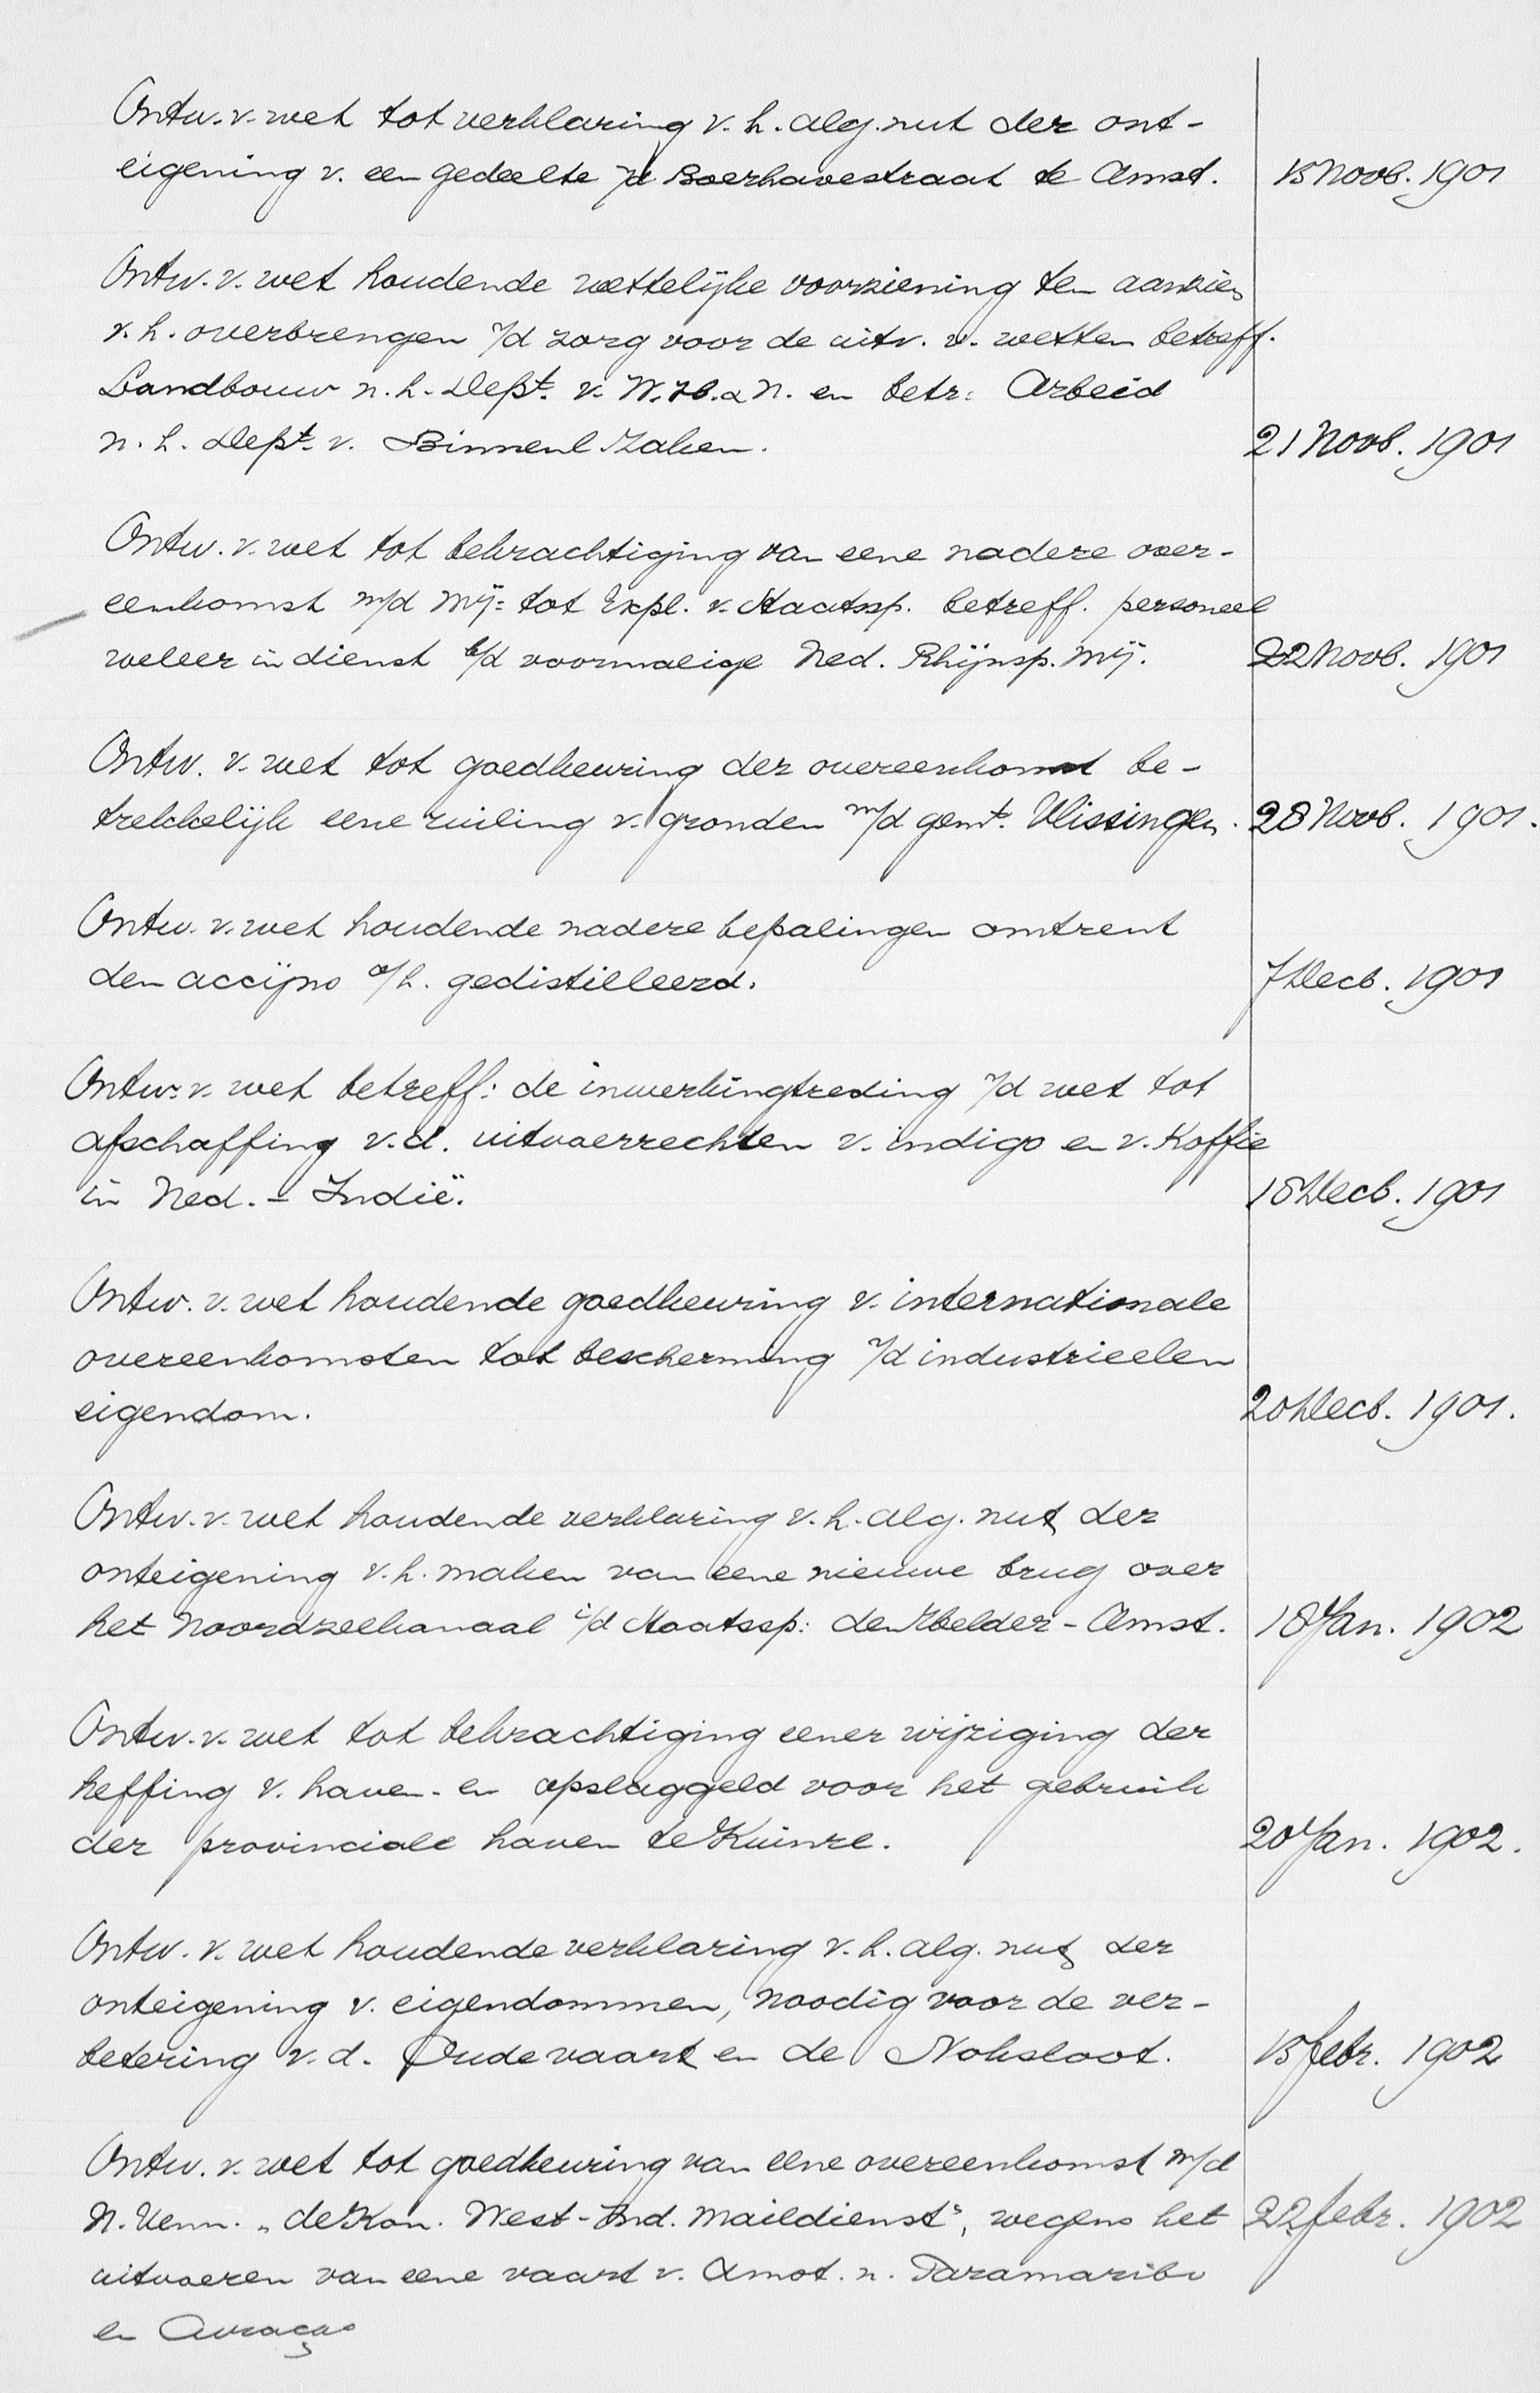 Ontw. v. wet tot verklaring v. h. alg. nut der ont-
eigening v. een gedeelte v/d Boerhavestraat te Amst. 15 Novb. 1901
Ontw. v. wet houdende wettelijke voorziening ten aanzien
v. h. overbrengen v/d zorg voor de uitv. v. wetten betreff.
Landbouw n. h. Dept. v. W. H. & N. en betr: Arbeid
n. h. Dept. v. Binnenl Zaken. 21 Novb. 1901
Ontw. v. wet tot bekrachtiging van eene nadere over-
eenkomst m/d Mij: tot Expl. v. Staatssp. betreff. personeel
weleer in dienst b/d voormalige Ned. Rhijnsp. Mij. 22 Novb. 1901
Ontw. v. wet tot goedkeuring der overeenkomst be-
trekkelijk eene ruiling v. gronden m/d gemt. Vlissingen. 28 Novb. 1901.
Ontw. v. wet houdende nadere bepalingen omtrent
den accijns o/h. gedistilleerd. 7 Decb. 1901
Ontw. v. wet betreff: de inwerkingtreding v/d wet tot
afschaffing v. d. uitvoerrechten v. indigo en v. Koffie
in Ned. - Indië. 18 Decb. 1901
Ontw. v. wet houdende goedkeuring v. internationale
overeenkomsten tot bescherming v/d industrieelen
eigendom. 20 Decb. 1901.
Ontw. v. wet houdende verklaring v. h. alg. nut der
onteigening v. h. maken van eene nieuwe brug over
het Noordzeekanaal i/d Staatssp: den Helder - Amst. 18 Jan. 1902
Ontw. v. wet tot bekrachtiging eener wijziging der
heffing v. haven- en opslaggeld voor het gebruik
der provinciale haven te Kuinre. 20 Jan. 1902.
Ontw. v. wet houdende verklaring v. h. alg. nut der
onteigening v. eigendommen, noodig voor de ver-
betering v. d. Oudevaart en de Noksloot. 15 febr. 1902
Ontw. v. wet tot goedkeuring van eene overeenkomst m/d
N. Venn. „de Kon. West-Ind. Maildienst", wegens het 22 febr. 1902
uitvoeren van eene vaart v. Amst. n. Paramaribo
en Curaçao